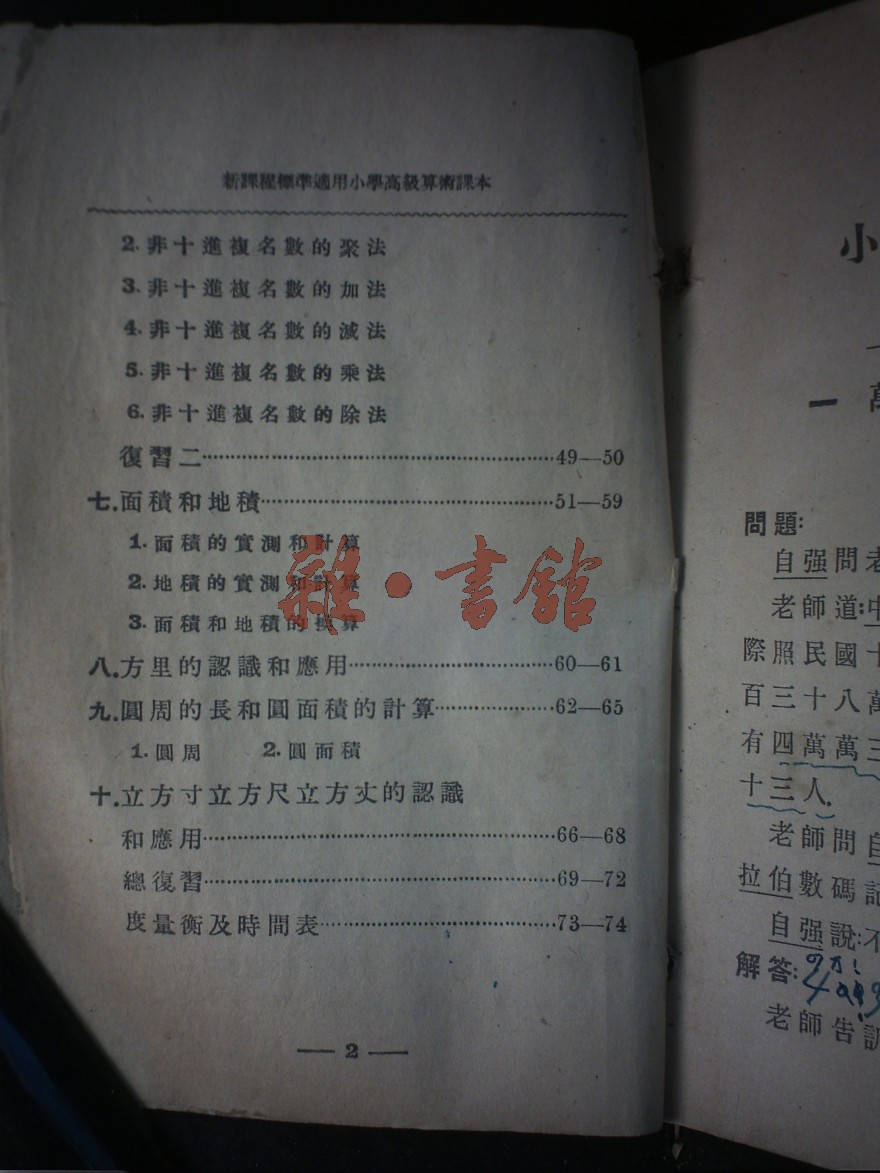 新課程標準適用小學高級算術課本
2. 非十進複名數的聚法
3. 非十進複名數的加法
4. 非十進複名數的減法
5. 非十進複名數的乘法
6. 非十進複名數的除法
復習二………49—50
七.面積和地積………51—59
1. 面積的實測和計算
2. 地積的實測和計算
3. 面積和地積的換算
八.方里的認識和應用………60—61
九.圓周的長和圓面積的計算………62—65
1. 圓周 2. 圓面積
十.立方寸立方尺立方丈的認識
和應用………66—68
總復習………69—72
度量衡及時間表………73—74
— 2 —
雜·書館
小
一
問題:
自强問老
老師道:中
際照民國十
百三十八萬
有四萬萬三
十三人.
老師問自
拉伯數碼記
自强說:不
解答:
老師告訓